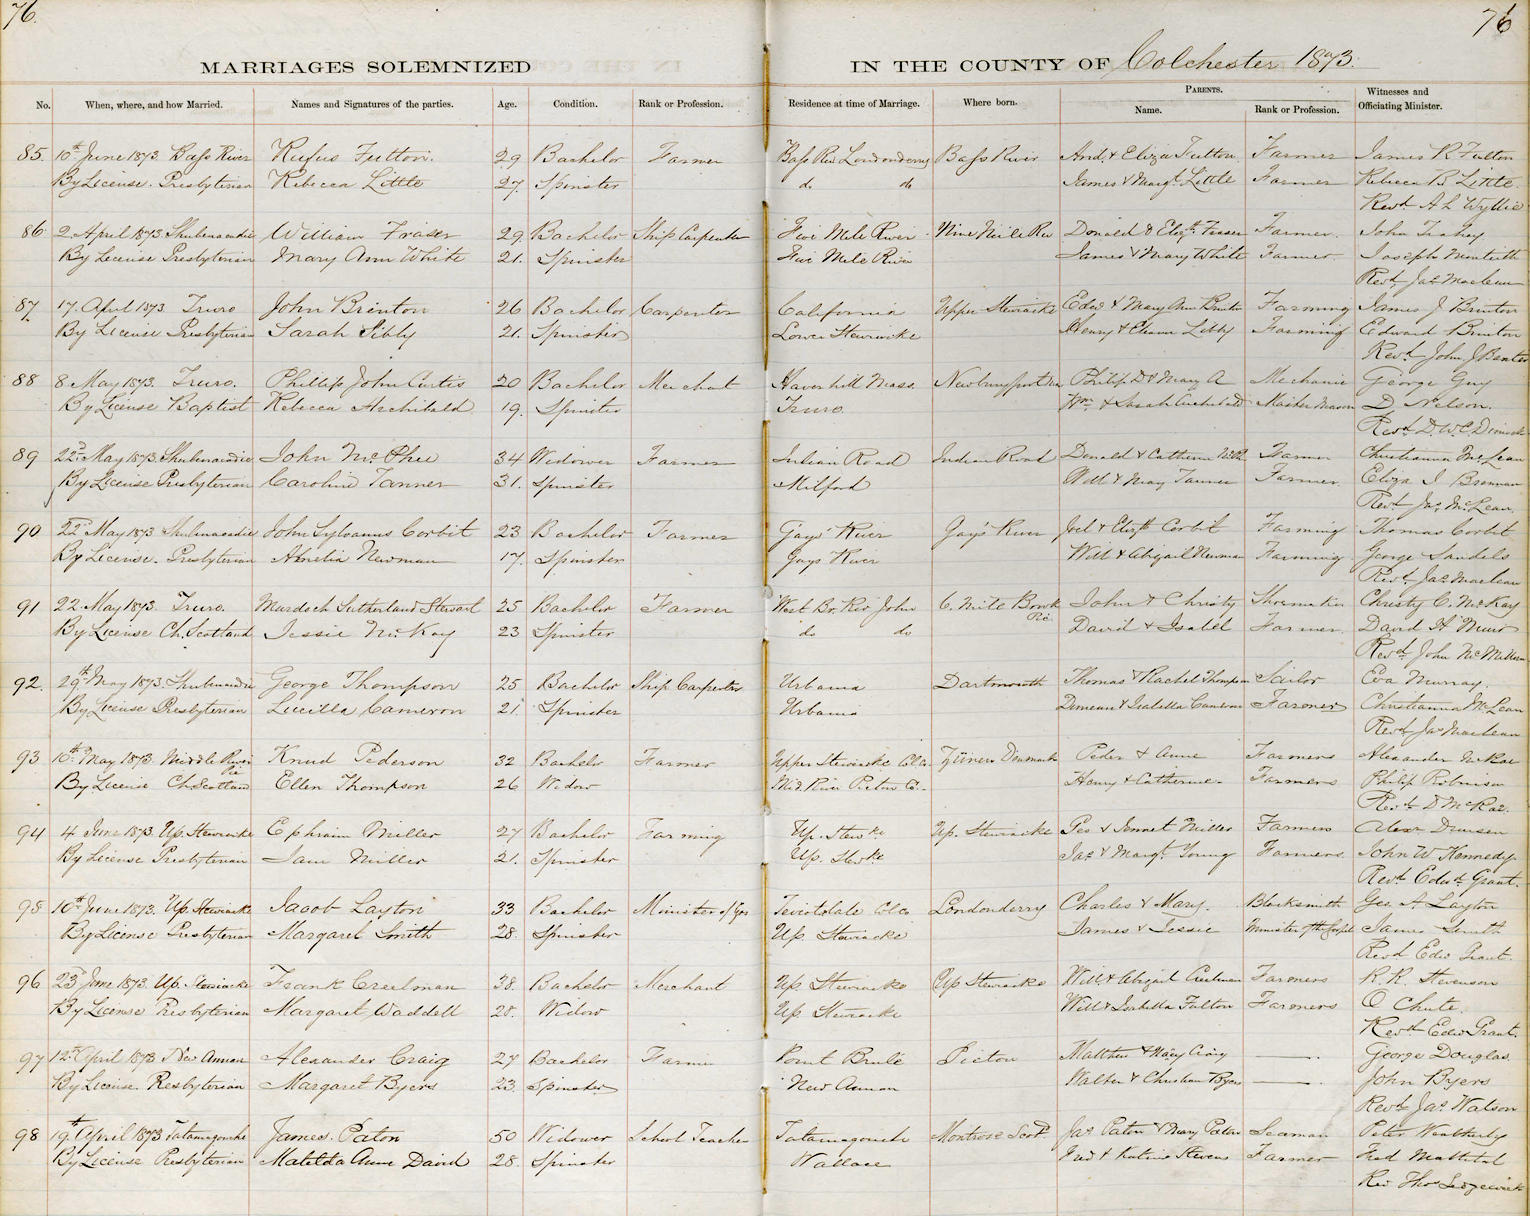 76.
76
MARRIAGES SOLEMNIZED IN THE COUNTY OF Colchester 1873.
No. When, where, and how Married. Names and Signatures of the parties. Age. Condition. Rank or Profession. Residence at time of Marriage. Where born. PARENTS. Name. Rank or Profession. Witnesses and Officiating Minister.
85. 10th June 1873. Bass River Rufus Fulton. 29 Bachelor Farmer Bass Riv. Londonderry Bass River And. & Eliza Fulton Farmer James R Fulton
By License. Presbyterian Rebecca Little 27 Spinster do do James & Margt. Little Farmer Rebecca B Little.
Revd A L Wyllie
86. 2 April 1873. Shubenacadie William Fraser 29. Bachelor Ship Carpenter Five Mile River Nine Mile Riv Donald & Elizth. Fraser Farmer. John
By License Presbyterian Mary Ann White 21. Spinster Five Mile River James & Mary White Farmer Joseph
Revd. Jas Maclean
87. 17. April 1873. Truro John Brenton 26 Bachelor Carpenter California Upper Stewiacke Edwd & Mary Ann Brenton Farming James J Brenton
By License Presbyterian Sarah Sibly 21. Spinster Lower Stewiacke Henry & Farming Edward Brenton
Revd. John J Baxter
88 8. May 1873. Truro. Phillip John Curtis 20 Bachelor Merchant Haverhill Mass. Newburyport Philip D & Mary A Mechanic George Guy
By License Baptist Rebecca Archibald 19. Spinster Truro. Wm. & Sarah Archibald Master Mason D Nelson.
Revd. D. W. C.
89 22d May 1873. Shubenacadie John McPhee 34 Widower Farmer Indian Road Indian Road Donald & Catherine Farmer Christianna McLean
By License Presbyterian Caroline Tanner 31. Spinster Milford Will & May Tanner Farmer. Eliza J Brennan
Revd. Jas. McLean.
90 22d May 1873 Shubenacadie John Sylvanus Corbit 23 Bachelor Farmer Gays River Gay's River Joel & Elizth Corbit Farming Thomas Corbit
By License. Presbyterian Amelia Newman 17. Spinster Gays River Will & Abigail Newman Farming George Sandels
Revd. Jas Maclean
91 22. May 1873. Truro. Murdoch Sutherland Stewart 25 Bachelor Farmer West Br. Riv John 6. Mile Brook Pic. John & Christy Shoemaker Christy C. McKay
By License Ch. Scotland Jessie McKay 23 Spinster do do David & Isabel Farmer. David H Muir
Revd. John McMillan
92. 29th May 1873. Shubenacadie George Thompson 25 Bachelor Ship Carpenter Urbania Dartmouth Thomas & Rachel Thompson Sailor Eva Murray.
By License Presbyterian Lucilla Cameron 21. Spinster Urbania Duncan & Isabella Cameron Farmer Christianna McLean
Revd Jas Maclean
93 10th May 1873. Middle River Pic Knud Pederson 32 Bachelor Farmer Upper Stewiacke Col Co. Denmark Peder & Anne Farmers Alexander McRae
By License Ch Scotland Ellen Thompson 26 Widow Mid River Pictou Co. Henry & Catherine Farmers Philip Robinson
Revd D McRae.
94 4 June 1873. Up. Stewiacke Ephraim Miller 27 Bachelor Farming Up. Stewke Up. Stewiacke Geo & Jennet Miller Farmers Alexr
By License Presbyterian Jane Miller 21. Spinster Up. Stwke Jas & Margt. Young Farmers John W Kennedy
Revd. Edwd. Grant.
95 10th June 1873. Up. Stewiacke Jacob Layton 33 Bachelor Minister of Gos Teviotdale Col Co Londonderry Charles & Mary. Blacksmith Geo. A Layton
By License Presbyterian Margaret Smith 28. Spinster Up. Stewiacke James & Jessie Minister of the Gospel James Smith
Revd Edw Grant.
96 23d June 1873. Up. Stewiacke Frank Creelman 38. Bachelor Merchant Up Stewiacke Up Stewiacke Will & Abigail Creelman Farmers R. R. Stevenson
By License Presbyterian Margaret Waddell 28. Widow Up Stewiacke Will & Isabella Fulton Farmers O Chute.
Revd Edw Grant.
97 12th April 1873 New Annan Alexander Craig 27 Bachelor Farmer Point Brulé Pictou Matthew & Nancy Craig George Douglas.
By License. Presbyterian Margaret Byers 23 Spinster New Annan Walter & Christian Byers John Byers
Revd. Jas. Watson
98 19th April 1873 Tatamagouche James. Paton 50 Widower School Teacher Tatamagouche Montrose Scotd. Jas Paton & Mary Paton Seaman Peter Weatherby
By License Presbyterian Matilda Anne David 28. Spinster Wallace Fred & Stevens Farmer Fred
Rev Thos Sedgewick